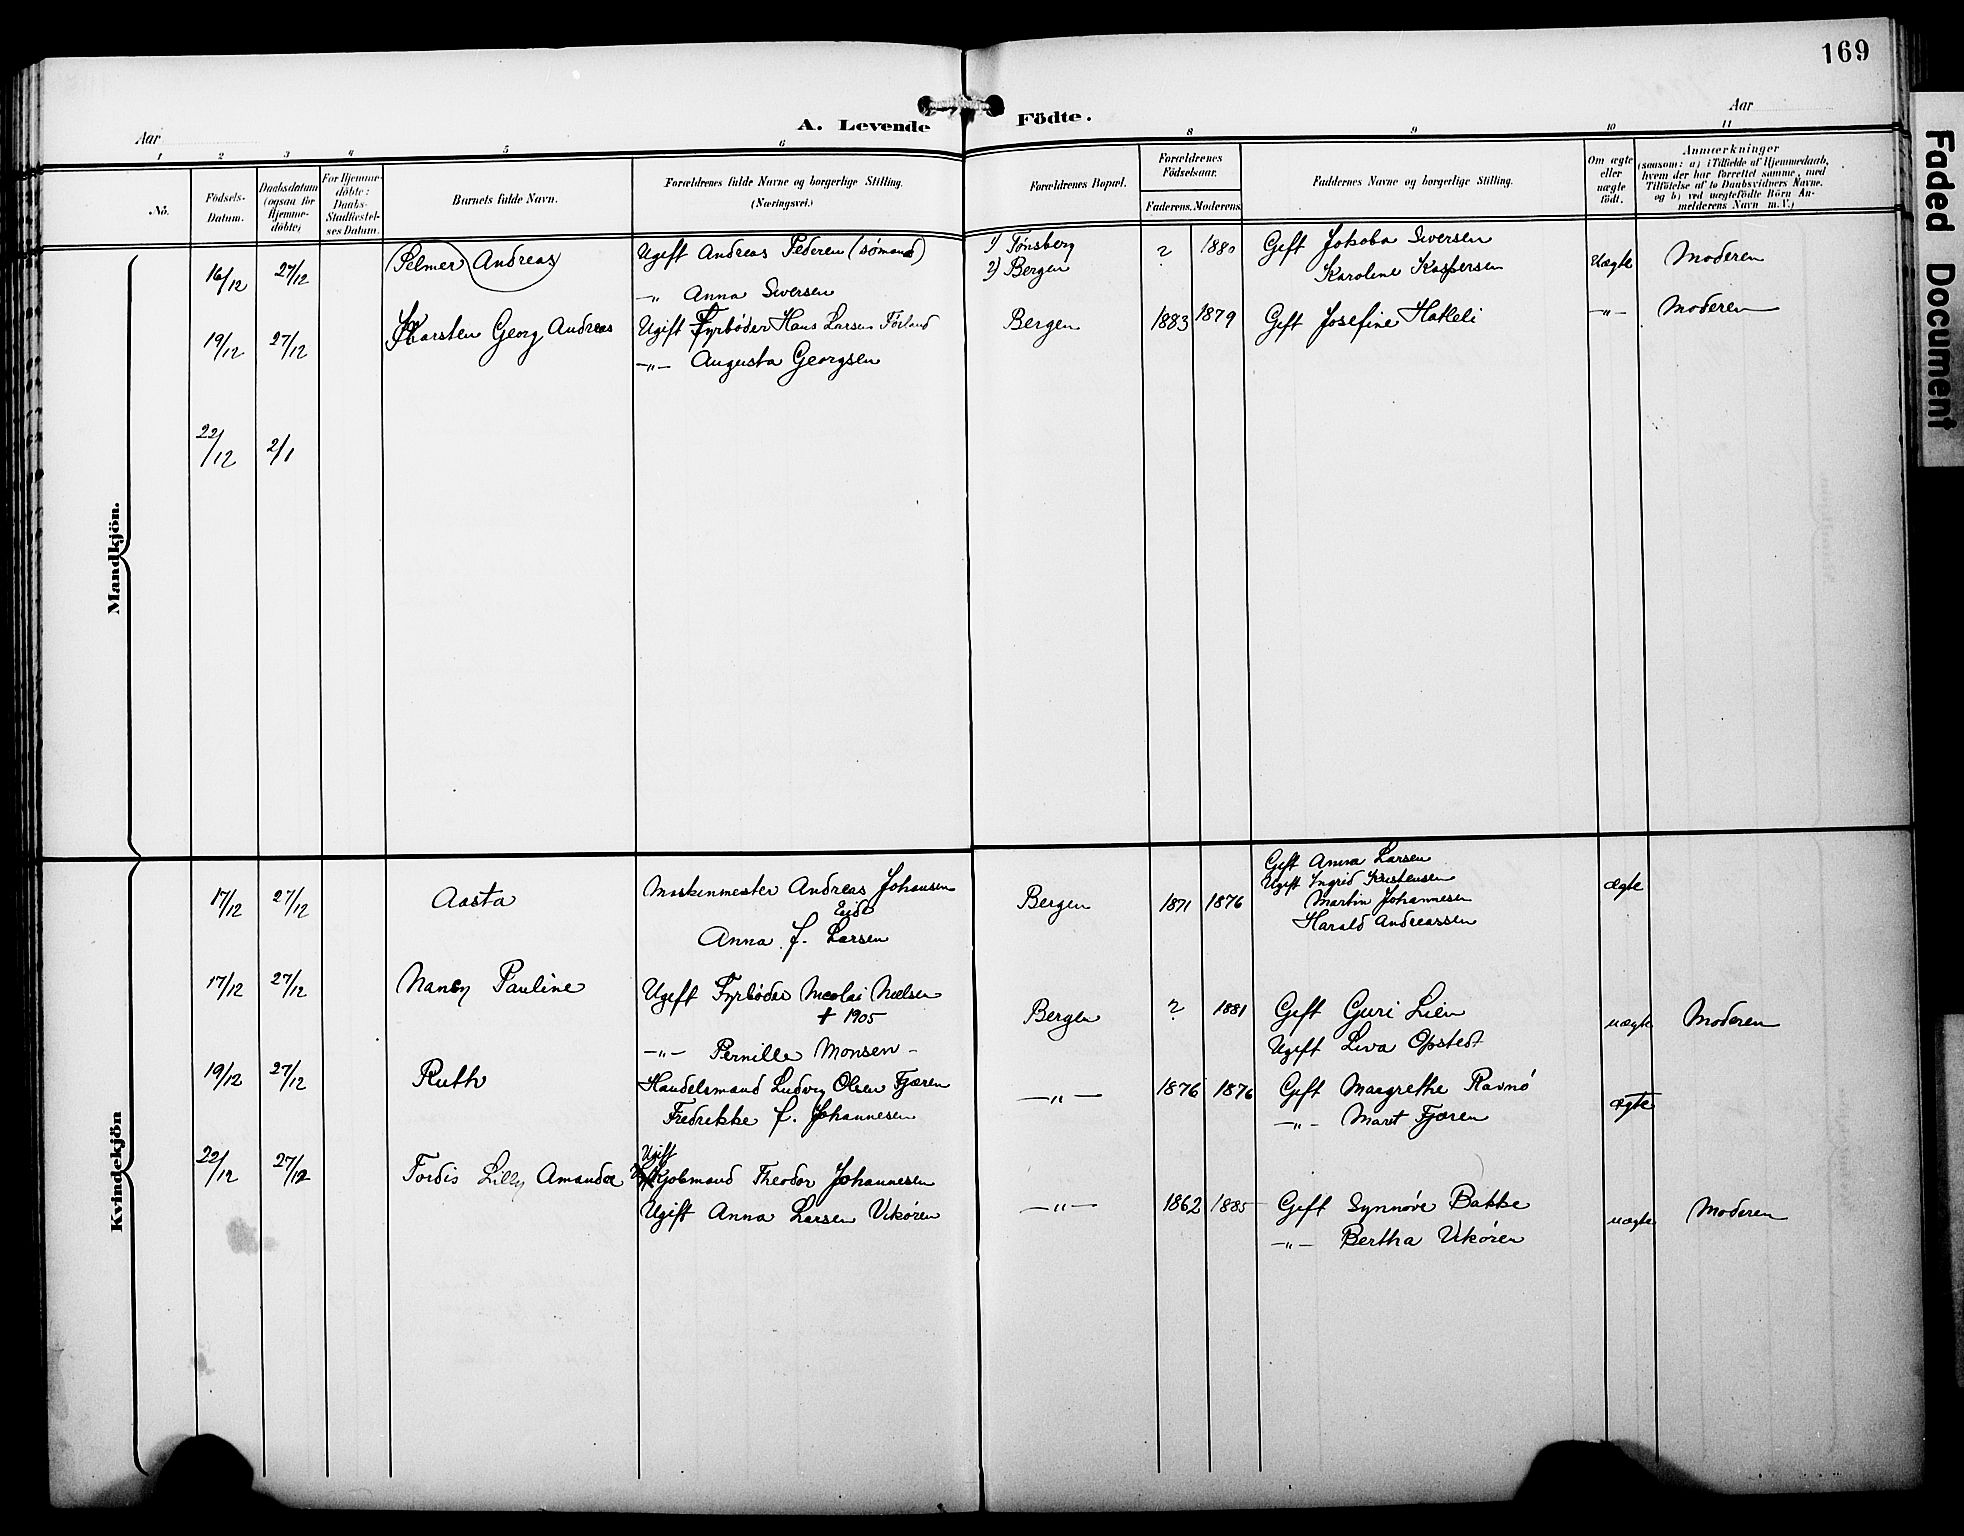 169
Aar
A. Levende Födte.
Aar
1 2 3 4 5 6 8 9 10 11
No.
Födsels-Datum.
Daabsdatum (ogsaa for Hjemmedöbte)
For Hjemmedöbte: Daabs-Stadfæstelses Datum.
Barnets fulde Navn.
Forældrenes fulde Navne og borgerlige Stilling.
(Næringsvei.)
Forældrenes Bopæl.
Forældrenes Födselsaar.
Faderens. Moderens.
Faddernes Navne og borgerlige Stilling.
Om ægte eller uægte födt.
Anmærkninger
(saasom: a) i Tilfælde af Hjemmedaab, hvem der har forrettet samme, med Tilföielse af to Daabsvidners Navne, og b) ved uægtefödte Börn Anmelderens Navn m.V.)
Mandkjön.
16/12 27/12 Pelmer Andreas Ugift Andreas Pedersen (sømand) 1) Tønsberg ? 1880 Gift Jakoba Siversen Uægte Moderen
-"- Anna Siversen 2) Bergen Karoline Kaspersen
19/12 27/12 Karsten Georg Andreas Ugift Fyrbøder Hans Larsen Förland Bergen 1883 1879 Gift Josefine Hakleli -"- Moderen
-"- Augusta Georgsen
22/12 2/1
Kvindekjön
17/12 27/12 Aasta Maskinmester Andreas Johansen Eide Bergen 1871 1876 Gift Anna Larsen ægte
Anna f. Larsen Ugift Ingrid Kristensen
Martin Johannesen
Harald Andreassen
17/12 27/12 Nancy Pauline Ugift Fyrbøder Nicolai Nielsen Bergen ? 1881 Gift Guri Lien uægte Moderen
+ 1905
-"- Pernille Monsen - Ugift Liva Opstedt
19/12 27/12 Ruth Handelsmand Ludvig Olsen Fjæren -"- 1876 1876 Gift Margrethe Ravnö ægte
Fredrikke f. Johannesen -"- Marit Fjæren
22/12 27/12 Tordis Lilly Amanda Ugift Kjøbmand Theodor Johannesen -"- 1862 1885 Gift Synnøve Bakke uægte Moderen
Ugift Anna Larsen Vikøren -"- Bertha Vikøren
Faded Document